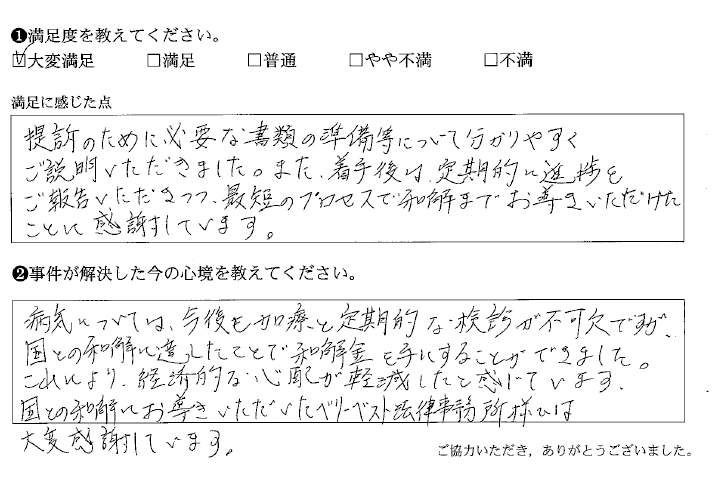 ❶満足度を教えてください。
☑大変満足 □満足 □普通 □やや不満 □不満
満足に感じた点
提訴のために必要な書類の準備等について分かりやすく
ご説明いただきました。また、着手後は、定期的に進捗を
ご報告いただきつつ、最短のプロセスで和解までお導きいただけた
ことに感謝しています。
❷事件が解決した今の心境を教えてください。
病気については、今後も加療と定期的な検診が不可欠ですが、
国との和解に達したことで和解金を手にすることができました。
これにより、経済的な心配が軽減したと感じています、
国との和解にお導きいただいたベリーベスト法律事務所様には
大変感謝しています。
ご協力いただき，ありがとうございました。